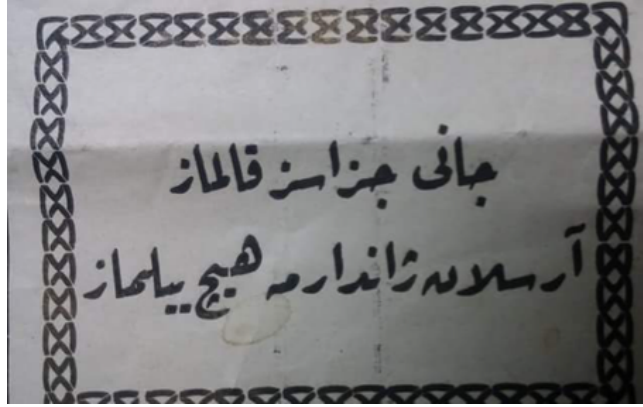 جانی جزاسز قالماز
آرسلان ژاندارمه هیچ ییلماز